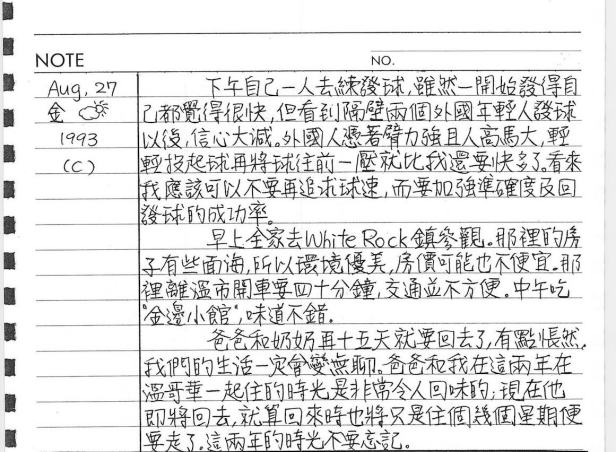 NOTE
NO.
Aug, 27
金
1993
(C)
下午自己一人去練發球,雖然一開始發得自
己都覺得很快,但看到隔壁兩個外國年輕人發球
以後,信心大減。外國人憑著臂力強且人高馬大,輕
輕投起球再將球往前一壓就比我還要快多了。看來
我應該可以不要再追求球速,而要加強準確度及回
發球的成功率。
早上全家去White Rock鎮參觀。那裡的房
子有些面海,所以環境優美,房價可能也不便宜。那
裡離溫市開車要四十分鐘,交通並不方便。中午吃
"金邊小館",味道不錯.
爸爸和奶奶再十五天就要回去了,有點悵然.
我們的生活一定會變無聊。爸爸和我在這兩年在
溫哥華一起住的時光是非常令人回味的;現在他
即將回去,就算回來時也將只是住個幾個星期便
要走了.這兩年的時光不要忘記。